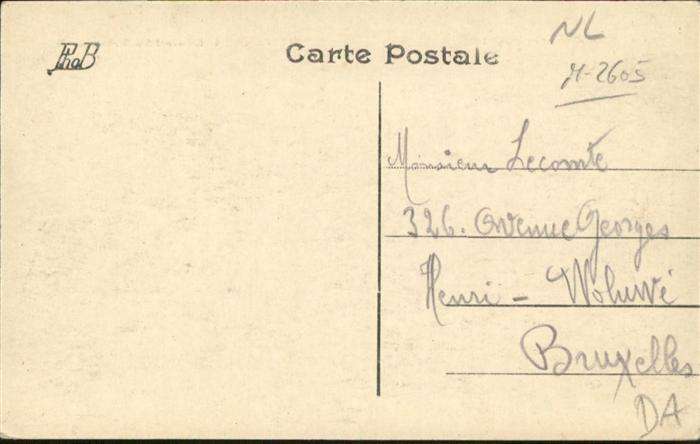 PhoB
Carte Postale
NL
M-2605
Monsieur Lecomte
326. Avenue Georges
Henri - Woluwé
Bruxelles
DA